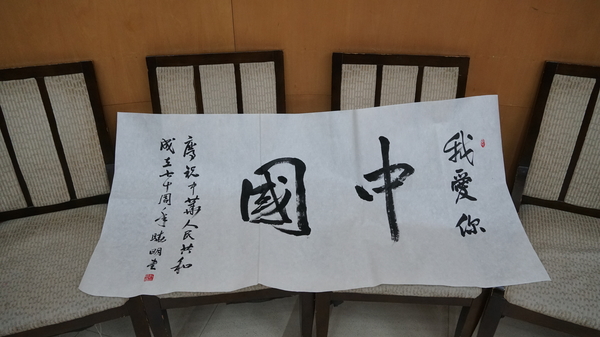 我愛你
中國
慶祝中華人民共和
成立七十周年 明書